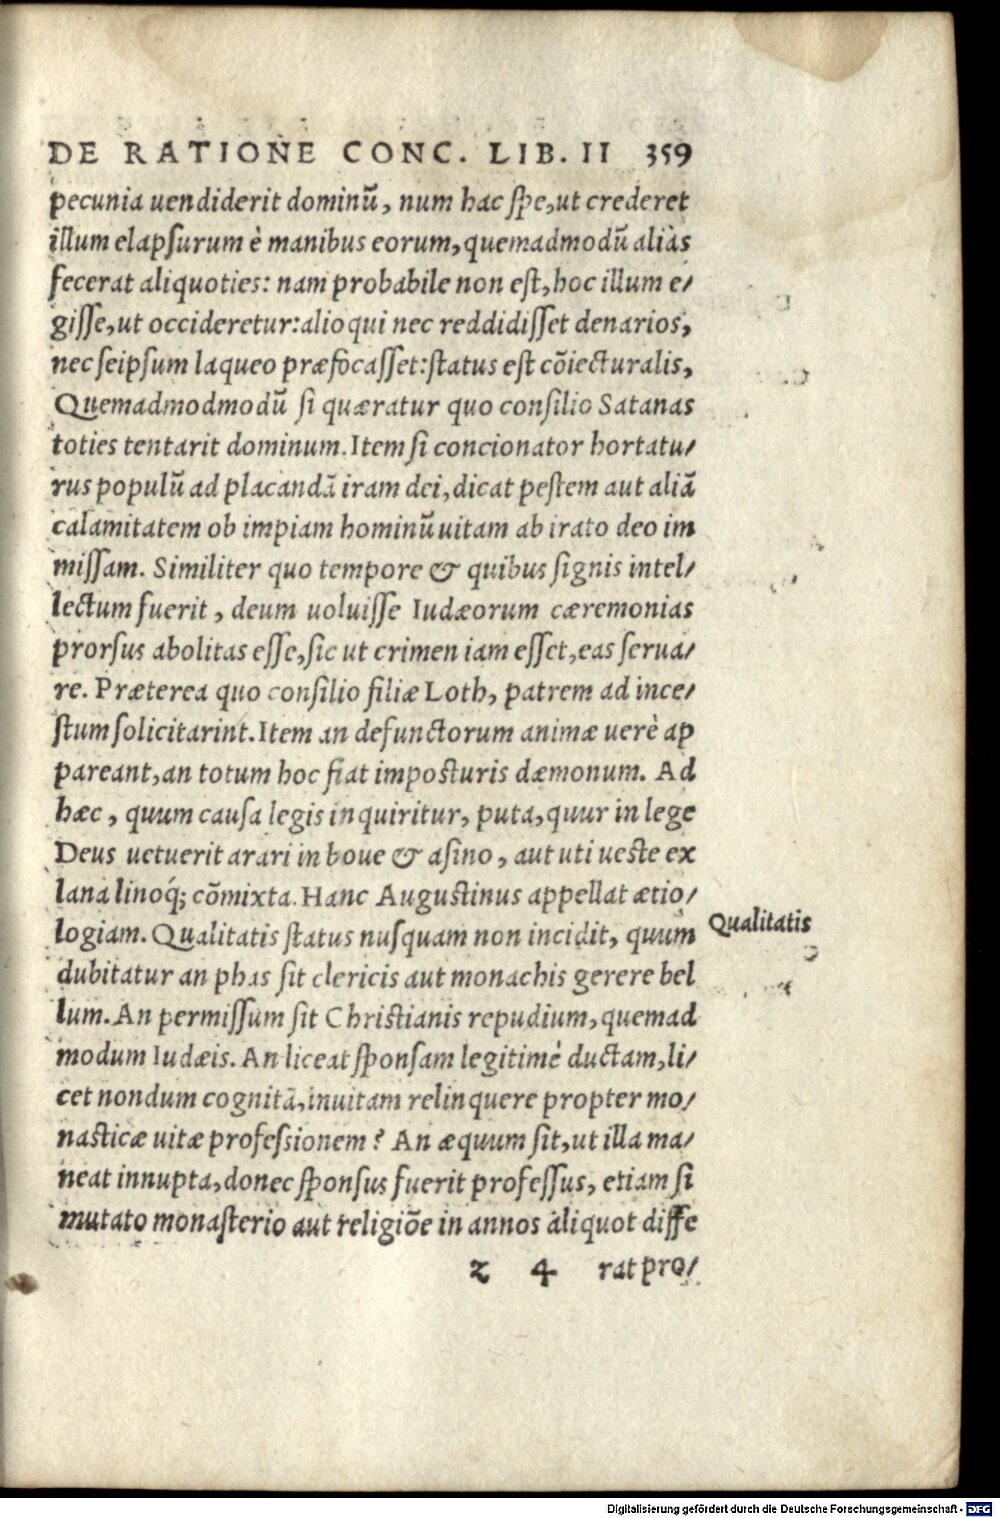 DE RATIONE CONC. LIB. II 359
pecunia uendiderit dominū, num hac ſpe, ut crederet
illum elapſurum è manibus eorum, quemadmodū aliàs
fecerat aliquoties: nam probabile non eſt, hoc illum e/
giſſe, ut occideretur: alioqui nec reddidiſſet denarios,
nec ſeipſum laqueo præfocaſſet: ſtatus eſt cōiecturalis,
Quemadmodmodū ſi quæratur quo conſilio Satanas
toties tentarit dominum. Item ſi concionator hortatu/
rus populū ad placandā iram dei, dicat peſtem aut aliā
calamitatem ob impiam hominū uitam ab irato deo im
miſſam. Similiter quo tempore & quibus ſignis intel/
lectum fuerit, deum uoluiſſe Iudæorum cæremonias
prorſus abolitas eſſe, ſic ut crimen iam eſſet, eas ſerua/
re. Præterea quo conſilio filiæ Loth, patrem ad ince/
ſtum ſolicitarint. Item an defunctorum animæ uerè ap
pareant, an totum hoc fiat impoſturis dæmonum. Ad
hæc, quum cauſa legis inquiritur, puta, quur in lege
Deus uetuerit arari in boue & aſino, aut uti ueſte ex
lana linoq́; cōmixta. Hanc Auguſtinus appellat ætio/
logiam. Qualitatis ſtatus nuſquam non incidit, quum
Qualitatis
dubitatur an phas ſit clericis aut monachis gerere bel
lum. An permiſſum ſit Chriſtianis repudium, quemad
modum Iudæis. An liceat ſponſam legitimè ductam, li/
cet nondum cognitā, inuitam relinquere propter mo/
naſticæ uitæ profeſsionem? An æquum ſit, ut illa ma/
neat innupta, donec ſponſus fuerit profeſſus, etiam ſi
mutato monaſterio aut religiōe in annos aliquot diffe
z 4 rat pro/
Digitalisierung gefördert durch die Deutsche Forschungsgemeinschaft - DFG